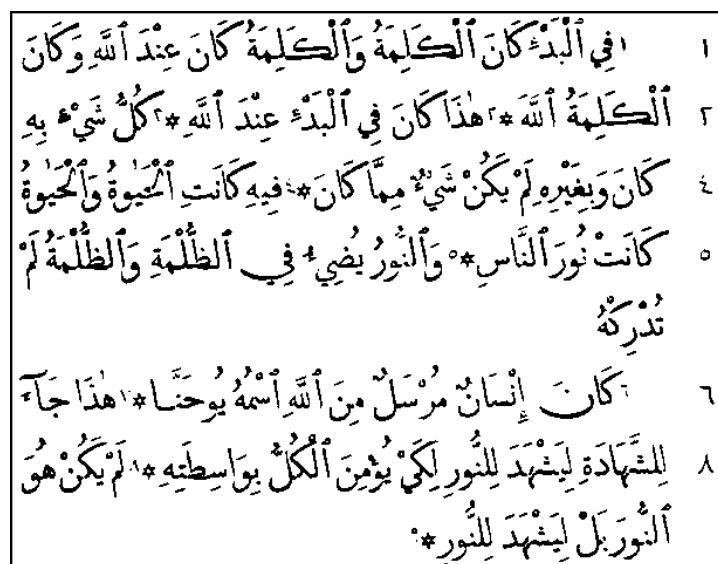 ١ ١ فِي ٱلْبَدْءِ كَانَ ٱلْكَلِمَةُ وَٱلْكَلِمَةُ كَانَ عِنْدَ ٱللّٰهِ وَكَانَ
٢ ٱلْكَلِمَةُ ٱللّٰهَ * ٢ هٰذَا كَانَ فِي ٱلْبَدْءِ عِنْدَ ٱللّٰهِ * ٣ كُلُّ شَيْءٍ بِهِ
٤ كَانَ وَبِغَيْرِهِ لَمْ يَكُنْ شَيْءٌ مِمَّا كَانَ * ٤ فِيهِ كَانَتِ ٱلْحَيٰوةُ وَٱلْحَيٰوةُ
٥ كَانَتْ نُورَ ٱلنَّاسِ * ٥ وَٱلنُّورُ يُضِيءُ فِي ٱلظُّلْمَةِ وَٱلظُّلْمَةُ لَمْ
تُدْرِكْهُ
٦ ٦ كَانَ إِنْسَانٌ مُرْسَلٌ مِنَ ٱللّٰهِ ٱسْمُهُ يُوحَنَّا * ٧ هٰذَا جَآءَ
٨ لِلشَّهَادَةِ لِيَشْهَدَ لِلنُّورِ لِكَيْ يُؤْمِنَ ٱلْكُلُّ بِوَاسِطَتِهِ * ٨ لَمْ يَكُنْ هُوَ
ٱلنُّورَ بَلْ لِيَشْهَدَ لِلنُّورِ * ٩